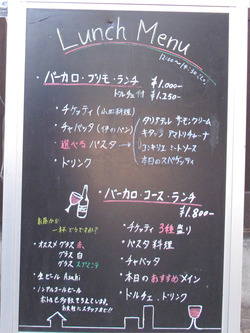 Lunch Menu
12:00〜14:30(L.O)
・バーカロ・プリモ・ランチ ¥1.000-
ドルチェ付 ¥1.250-
・チケッティ(小皿料理)
・チャバッタ(伊のパン)
・選べるパスタ→
タリアテッレ サーモンクリーム
キタッラ アマトリチャーナ
コンキリエ ミートソース
本日のスパゲッティ
・ドリンク
・バーカロ・コース・ランチ
¥1.800-
・チケッティ 3種盛り
・パスタ料理
・チャバッタ
・本日のおすすめメイン
・ドルチェ、ドリンク
お昼から
一杯どうですか?
・オススメ グラス 赤
グラス 白
グラス スプマンテ
・生ビール Asahi
・ノンアルコールビール